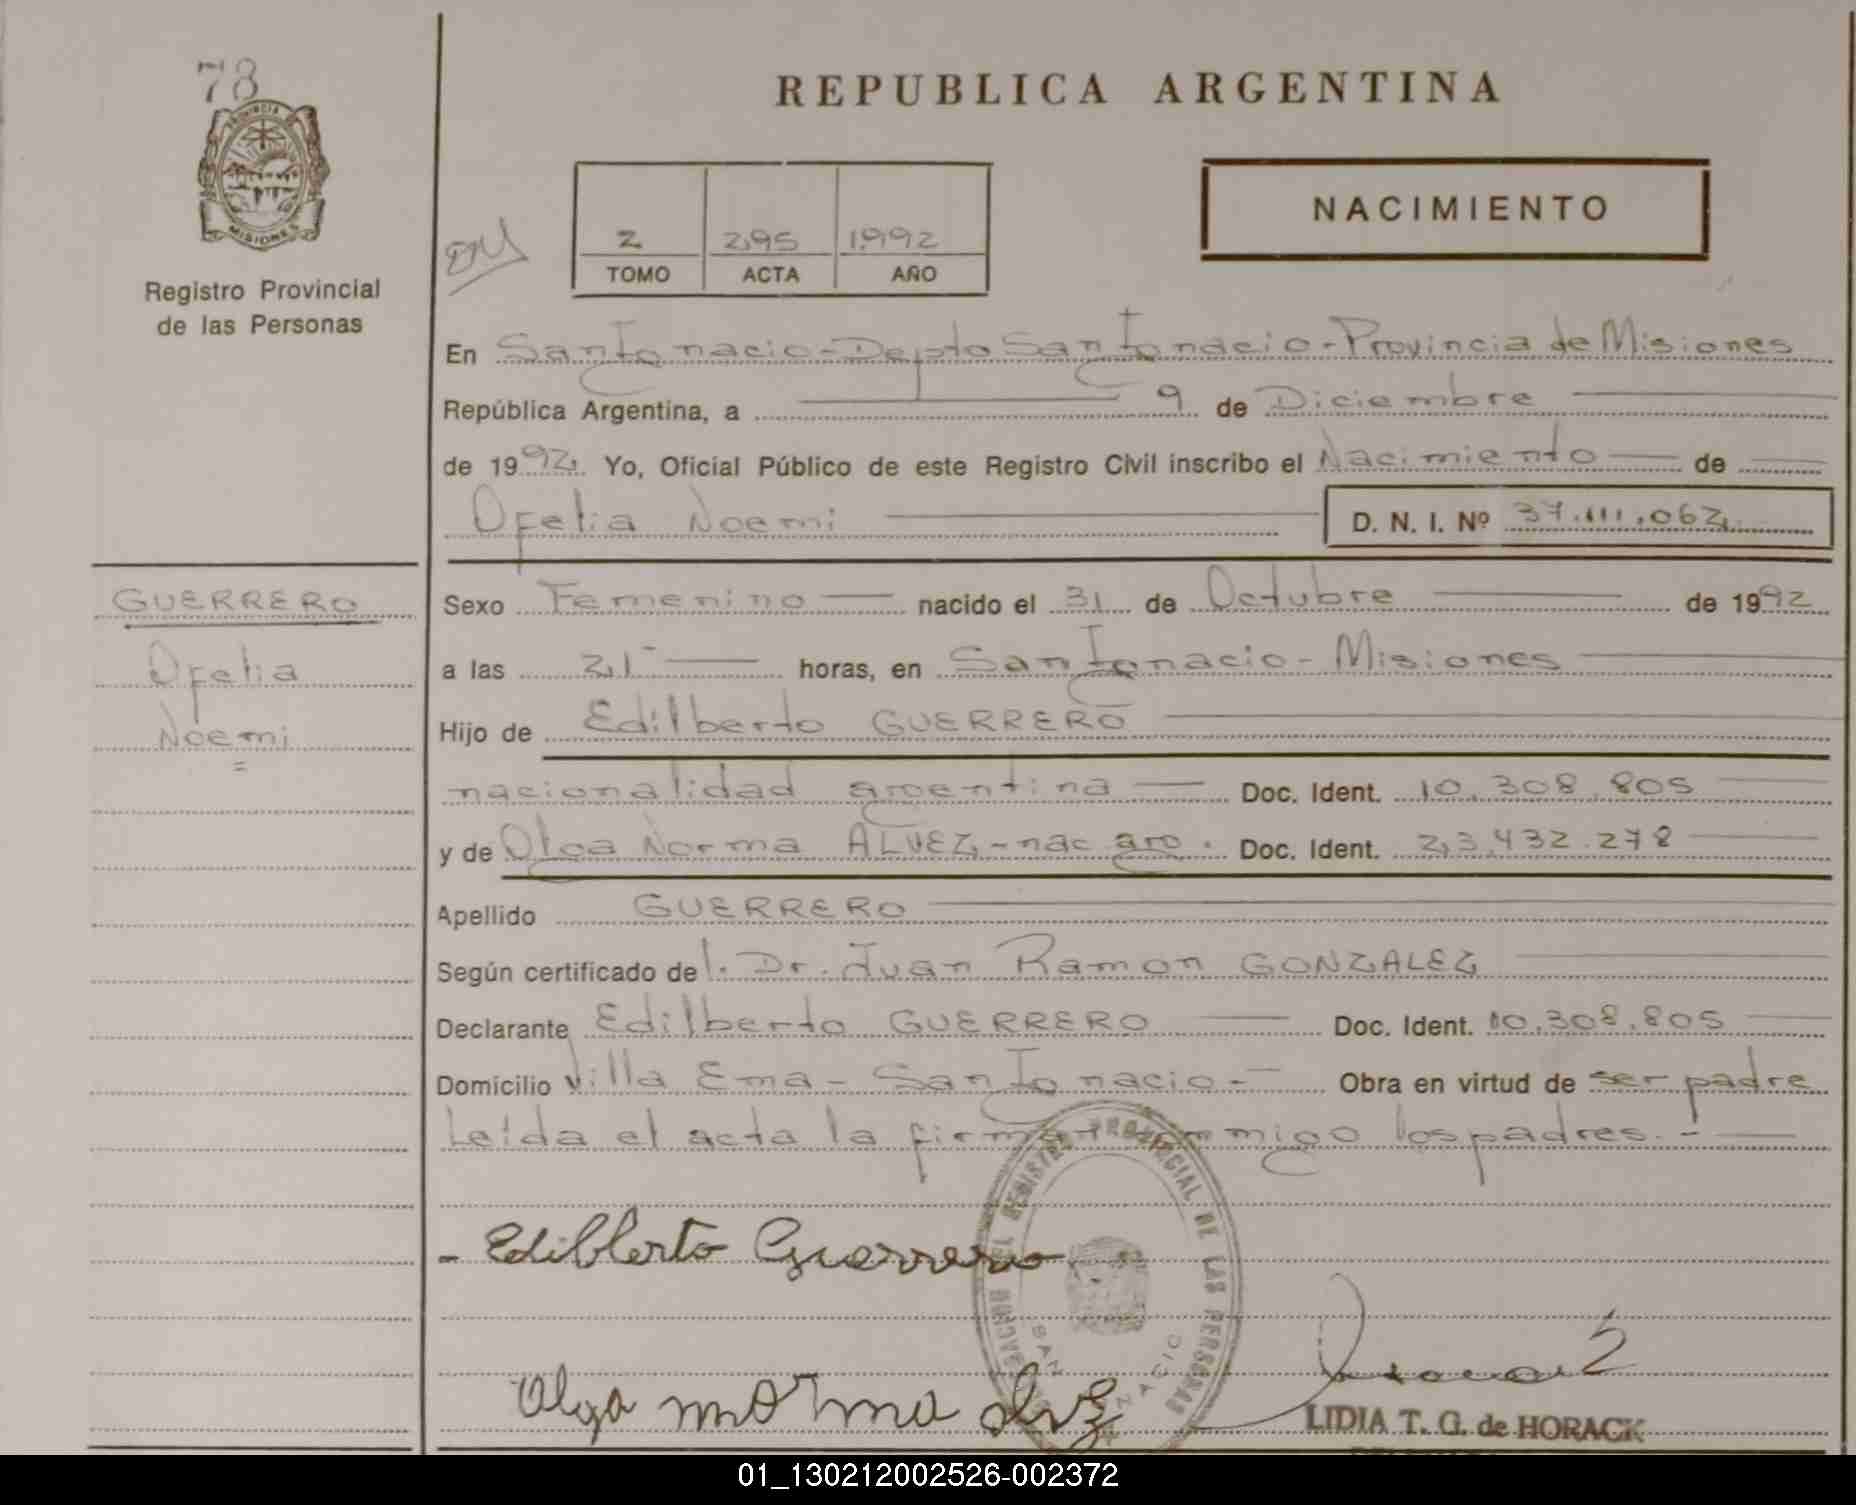 78
PROVINCIA DE
MISIONES
Registro Provincial
de las Personas
REPUBLICA ARGENTINA
2 295 1992
TOMO ACTA AÑO
NACIMIENTO
En San Ignacio - Depto San Ignacio - Provincia de Misiones
República Argentina, a 9 de Diciembre
de 1992. Yo, Oficial Público de este Registro Civil inscribo el Nacimiento de
Ofelia Noemi D. N. I. Nº 37.111.062
GUERRERO
Ofelia
Noemi
Sexo Femenino nacido el 31 de Octubre de 1992
a las 21 horas, en San Ignacio - Misiones
Hijo de Edilberto GUERRERO
nacionalidad argentina Doc. Ident. 10.308.805
y de Olga Norma ALVEZ - nac arg. Doc. Ident. 23.432.278
Apellido GUERRERO
Según certificado del. Dr. Juan Ramon GONZALEZ
Declarante Edilberto GUERRERO Doc. Ident. 10.308.805
Domicilio Villa Ema - San Ignacio - Obra en virtud de ser padre
Leida el acta la firman conmigo los padres. -
REGISTRO PROVINCIAL DE LAS PERSONAS
SAN IGNACIO
- Edilberto Guerrero
Olga norma
LIDIA T. G. de HORACK
01_130212002526-002372